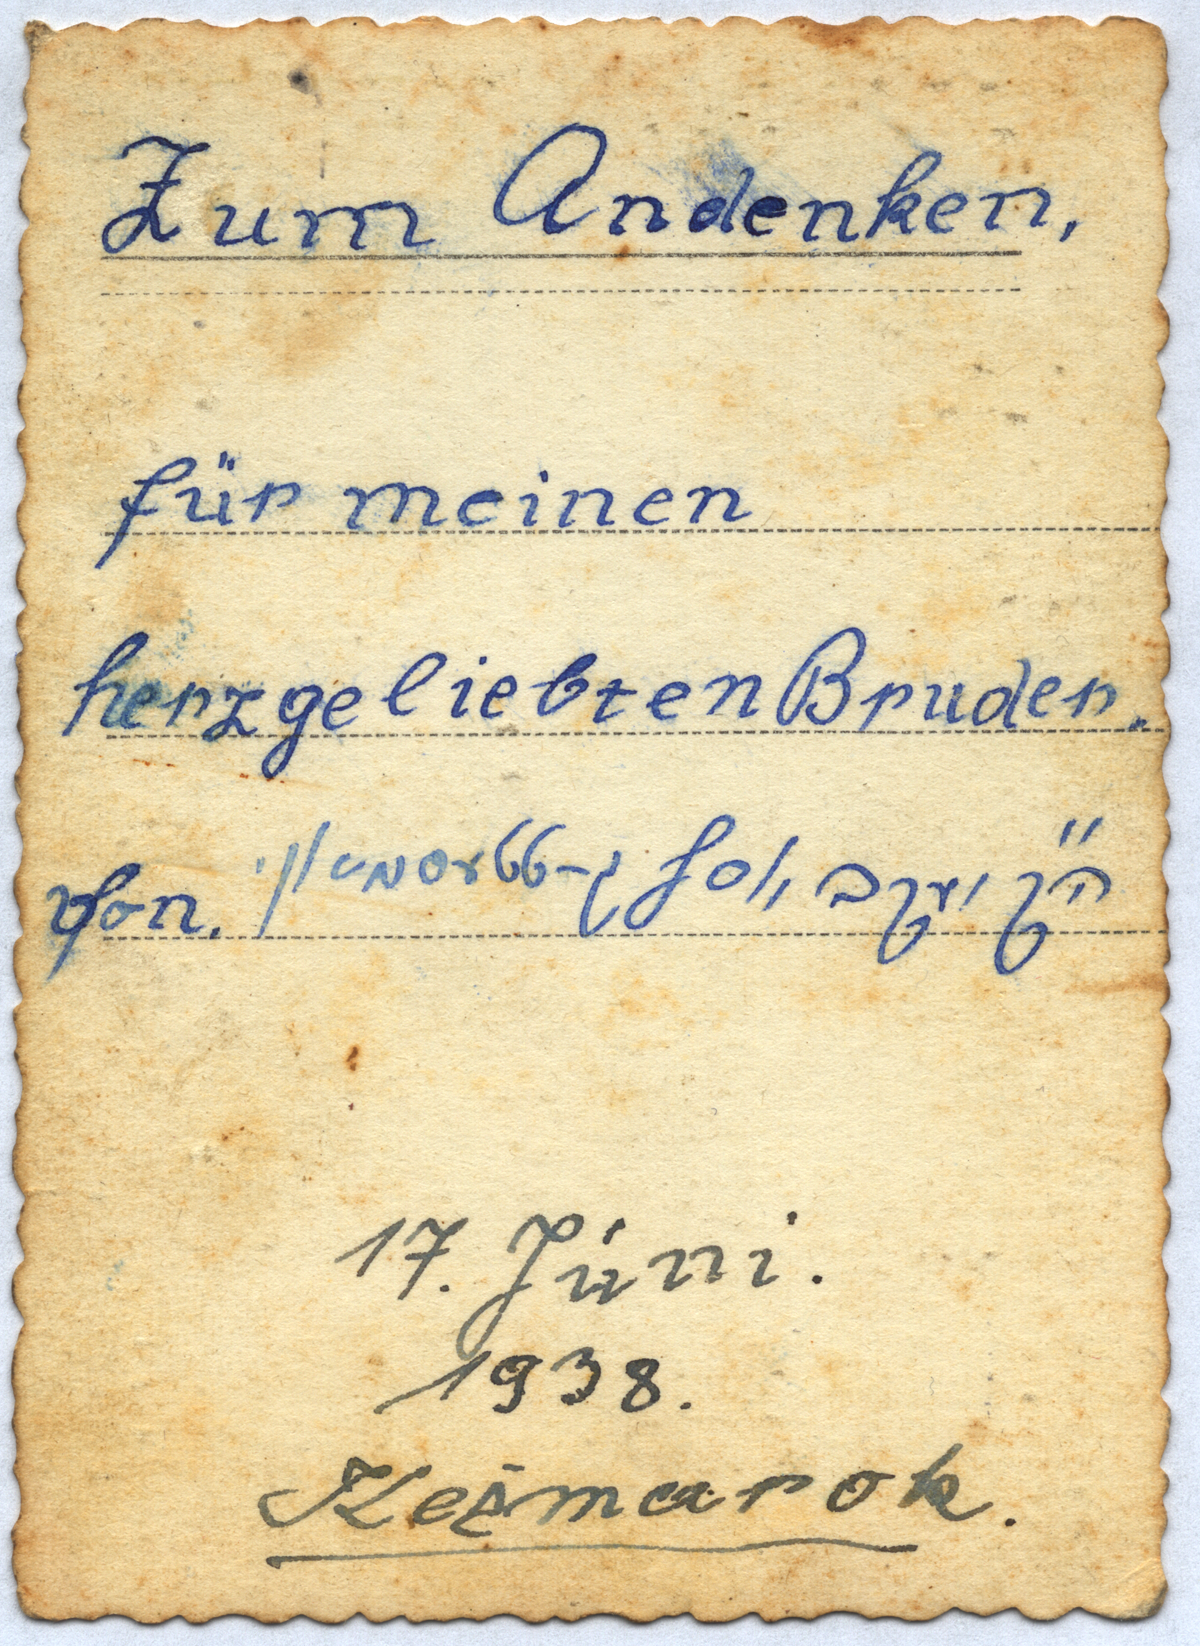 Zum Andenken,
für meinen
herzgeliebten Bruder.
von. ה"ק יעקב יוסף
17. Júni.
1938.
Kežmarok.